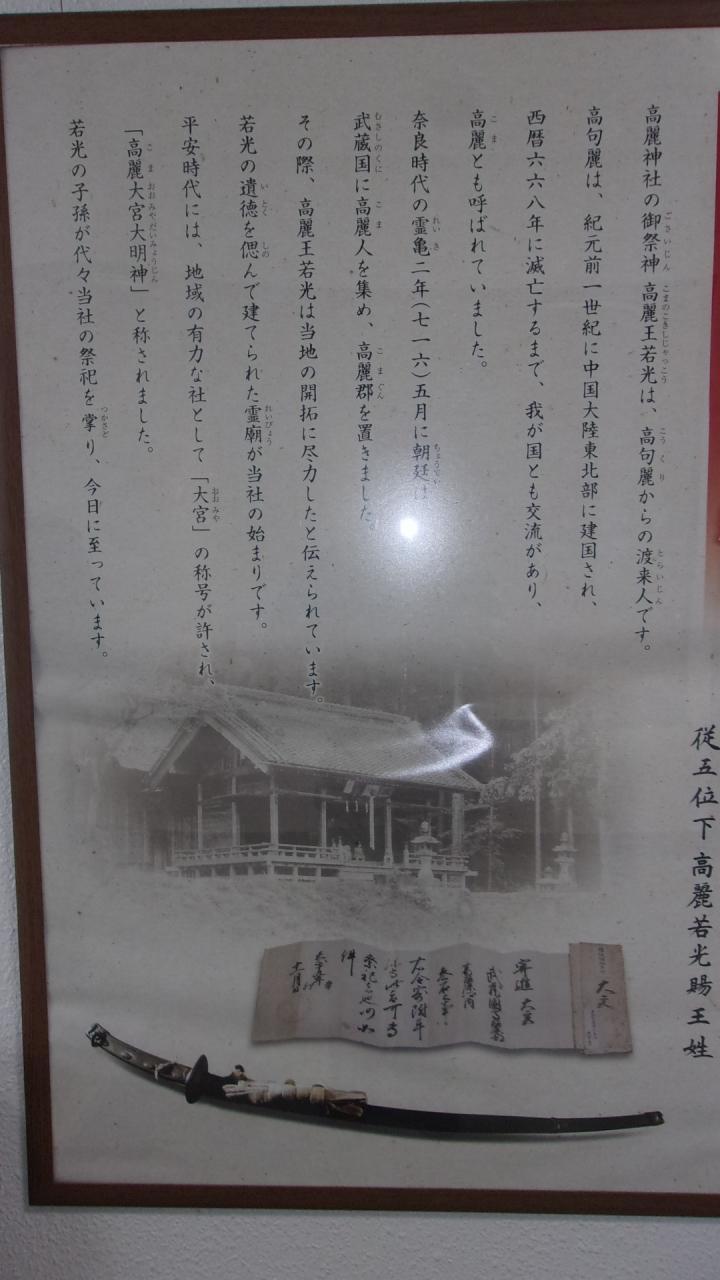 従五位下高麗若光賜王姓
高麗神社の御祭神 高麗王若光は、高句麗からの渡来人です。
高句麗は、紀元前一世紀に中国大陸東北部に建国され、
西暦六六八年に滅亡するまで、我が国とも交流があり、
高麗とも呼ばれていました。
奈良時代の霊亀二年(七一六)五月に朝廷は
武蔵国に高麗人を集め、高麗郡を置きました。
その際、高麗王若光は当地の開拓に尽力したと伝えられています。
若光の遺徳を偲んで建てられた霊廟が当社の始まりです。
平安時代には、地域の有力な社として「大宮」の称号が許され、
「高麗大宮大明神」と称されました。
若光の子孫が代々当社の祭祀を掌り、今日に至っています。